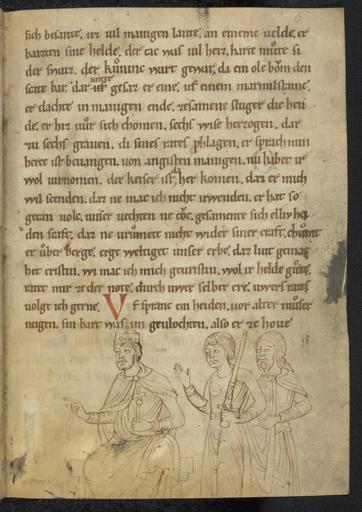 sich besante. ir uil manigen lante. an eineme uelde. er
barzten sine helde. der tac was uil heiz. harte muͦte si
der sweiz. der kuninc wart gewar. da ein ole boͮm den
scate bar. dar unter gesaz er eine. uf einem marmilsteine.
er dachte in manigen ende. zesamene sluger die hen
de. er hiz uur sich chomen. sechs wise herzogen. dar
zu sechs grauen. di sines rates phlagen. er sprach min
herce ist beuangen. uon angesten manigen. nu habet ir
wol uirnomen. der keiser ist her komen. daz er mich
wil scenden. daz ne mac ich nicht irwenden. er hat so
getan uolc. unser uechten ne toͮc. gesamente sich elliu hei
denscaft. daz ne uirment nicht wider siner craft. chumt
er uber berge. ergt wetuget unser erbe. daz lant gemac
het cristin. wi mac ich mich geuristin. wol ir helde guͦte.
ratet mir ze der note. durch uwer selber ere. uwers rates
uolge ich gerne. Vf spranc ein heiden. uor alter muser
neigen. sin bart was im geulochten. also er ze houe